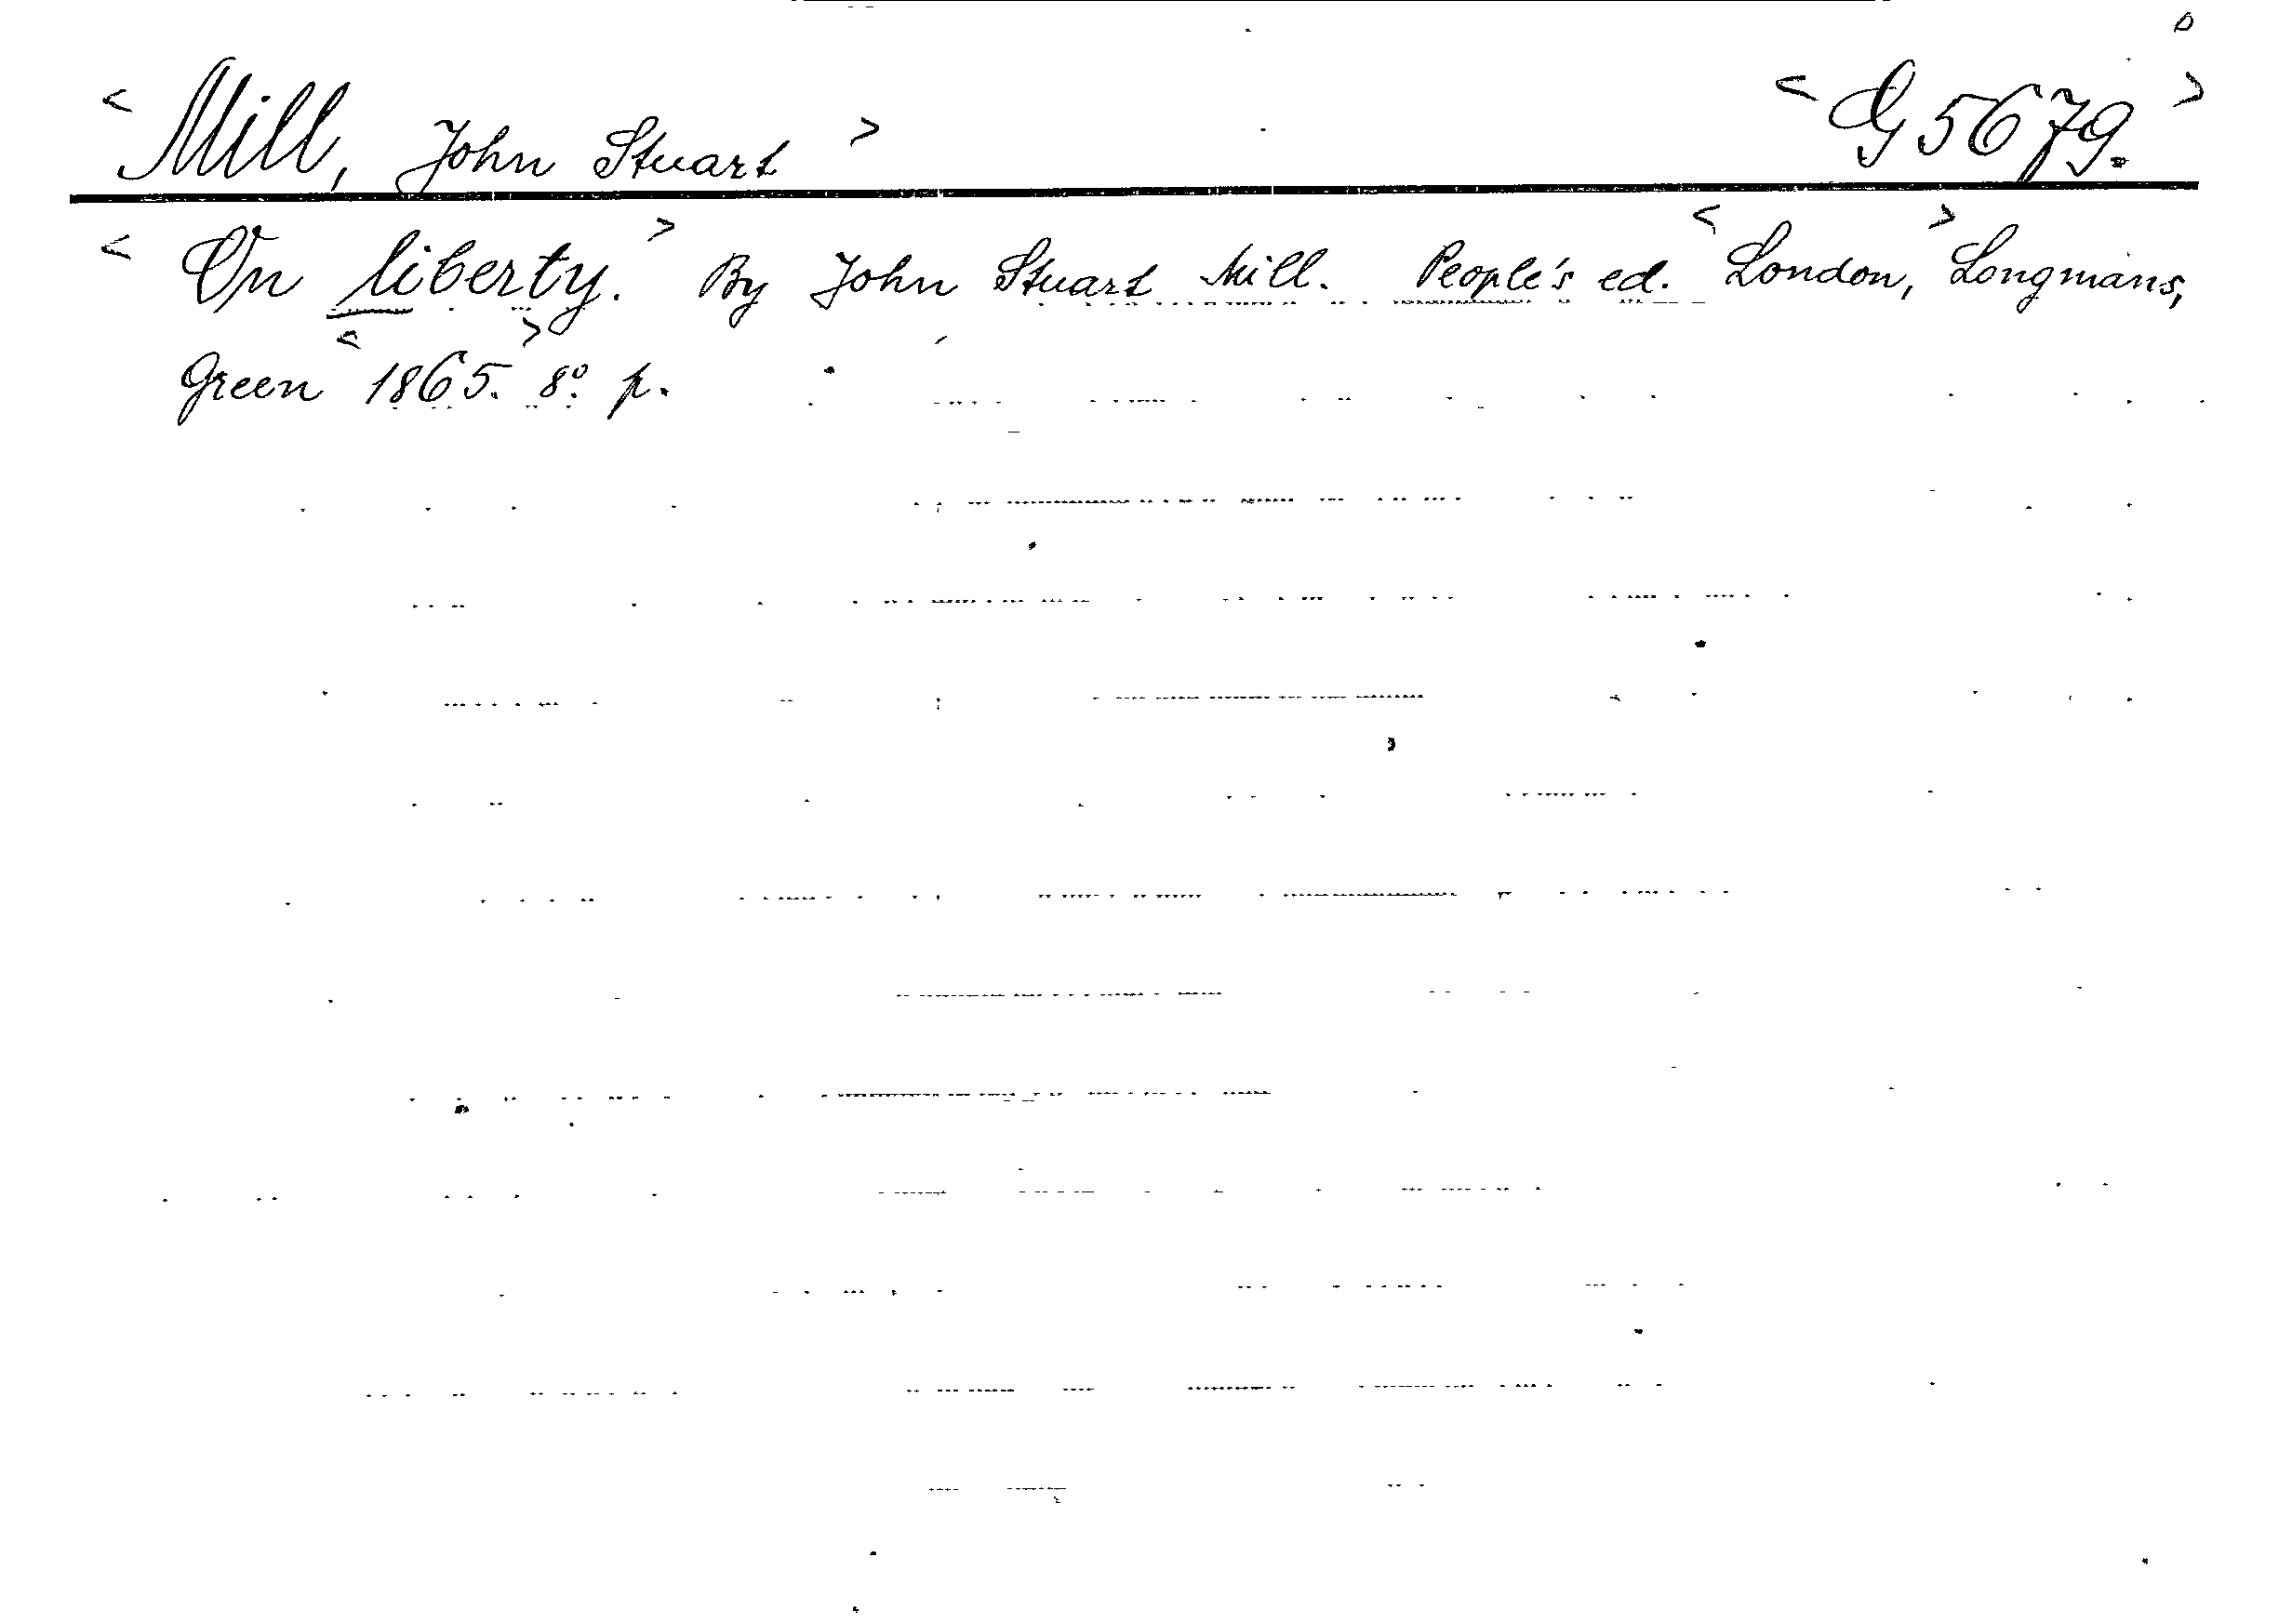 <Mill, John Stuart> <G 5679.>
<On liberty.> By John Stuart Mill. People's ed. <London,> Longmans,
Green <1865.> 8º. p.